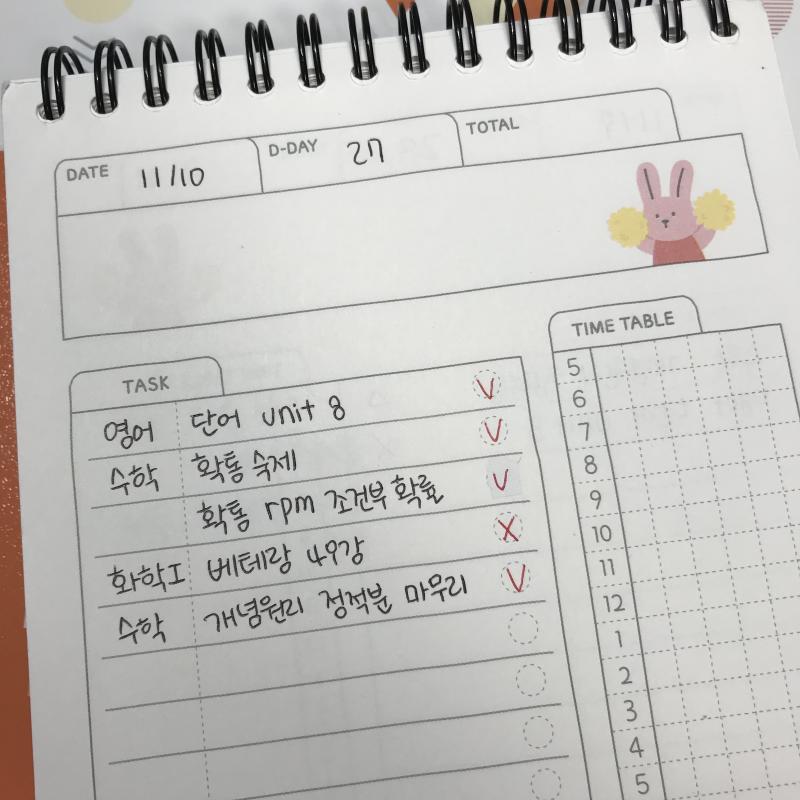 DATE 11/10 D-DAY 27 TOTAL
TASK
영어 단어 unit 8 V
수학 확통 숙제 V
확통 rpm 조건부 확률 V
화학I 베테랑 49강 X
수학 개념원리 정적분 마무리 V
TIME TABLE
5
6
7
8
9
10
11
12
1
2
3
4
5